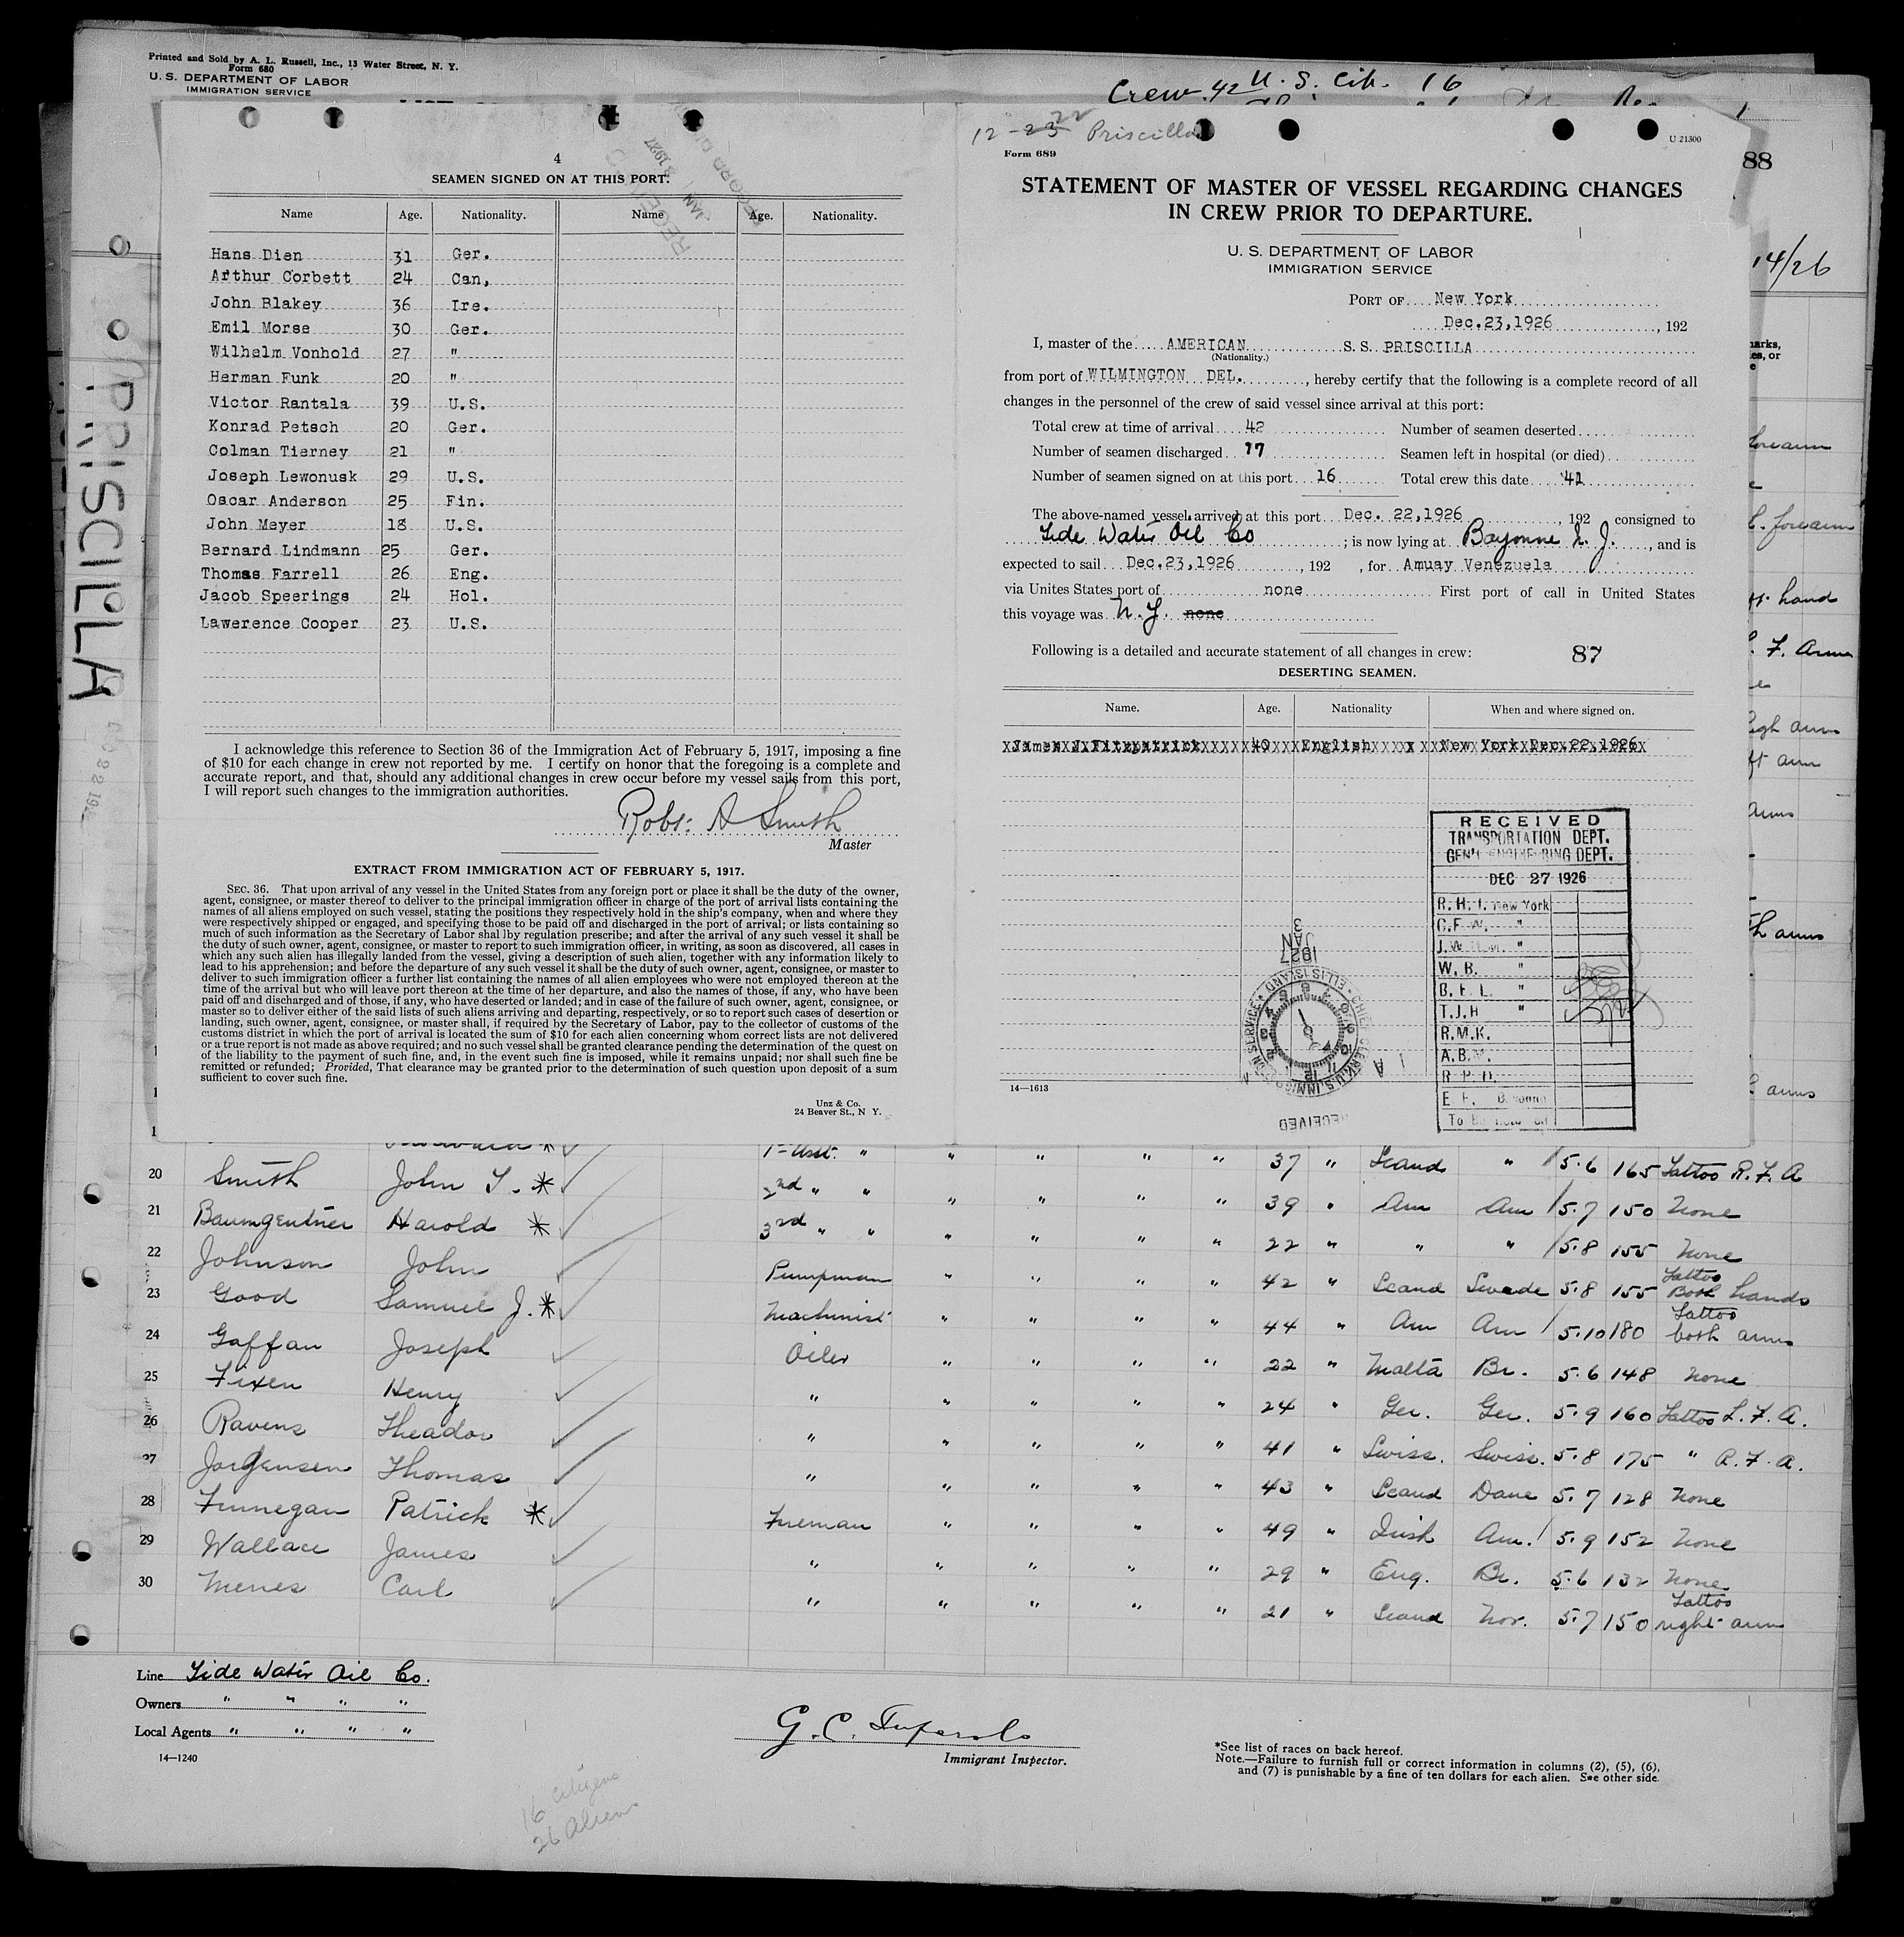 Printed and Sold by A. L. Russell, Inc., 13 Water Street, N. Y.
Form 680
U. S. DEPARTMENT OF LABOR
IMMIGRATION SERVICE
Crew. 42 U. S. Cit. 16
88
14/26
PRISCILLA
4
SEAMEN SIGNED ON AT THIS PORT.
Name Age. Nationality. Name Age. Nationality.
Hans Dien 31 Ger.
Arthur Corbett 24 Can,
John Blakey 36 Ire.
Emil Morse 30 Ger.
Wilhelm Vonhold 27 "
Herman Funk 20 "
Victor Rantala 39 U.S.
Konrad Petsch 20 Ger.
Colman Tierney 21 "
Joseph Lewonusk 29 U.S.
Oscar Anderson 25 Fin.
John Meyer 18 U.S.
Bernard Lindmann 25 Ger.
Thomas Farrell 26 Eng.
Jacob Speerings 24 Hol.
Lawerence Cooper 23 U.S.
I acknowledge this reference to Section 36 of the Immigration Act of February 5, 1917, imposing a fine
of $10 for each change in crew not reported by me. I certify on honor that the foregoing is a complete and
accurate report, and that, should any additional changes in crew occur before my vessel sails from this port,
I will report such changes to the immigration authorities.
Robt. A Smith
Master
EXTRACT FROM IMMIGRATION ACT OF FEBRUARY 5, 1917.
SEC. 36. That upon arrival of any vessel in the United States from any foreign port or place it shall be the duty of the owner,
agent, consignee, or master thereof to deliver to the principal immigration officer in charge of the port of arrival lists containing the
names of all aliens employed on such vessel, stating the positions they respectively hold in the ship's company, when and where they
were respectively shipped or engaged, and specifying those to be paid off and discharged in the port of arrival; or lists containing so
much of such information as the Secretary of Labor shal lby regulation prescribe; and after the arrival of any such vessel it shall be
the duty of such owner, agent, consignee, or master to report to such immigration officer, in writing, as soon as discovered, all cases in
which any such alien has illegally landed from the vessel, giving a description of such alien, together with any information likely to
lead to his apprehension; and before the departure of any such vessel it shall be the duty of such owner, agent, consignee, or master to
deliver to such immigration officer a further list containing the names of all alien employees who were not employed thereon at the
time of the arrival but who will leave port thereon at the time of her departure, and also the names of those, if any, who have been
paid off and discharged and of those, if any, who have deserted or landed; and in case of the failure of such owner, agent, consignee, or
master so to deliver either of the said lists of such aliens arriving and departing, respectively, or so to report such cases of desertion or
landing, such owner, agent, consignee, or master shall, if required by the Secretary of Labor, pay to the collector of customs of the
customs district in which the port of arrival is located the sum of $10 for each alien concerning whom correct lists are not delivered
or a true report is not made as above required; and no such vessel shall be granted clearance pending the determination of the quest on
of the liability to the payment of such fine, and, in the event such fine is imposed, while it remains unpaid; nor shall such fine be
remitted or refunded; Provided, That clearance may be granted prior to the determination of such question upon deposit of a sum
sufficient to cover such fine.
Unz & Co.
24 Beaver St., N Y.
12-23 22 Priscilla
U 21300
Form 689
STATEMENT OF MASTER OF VESSEL REGARDING CHANGES
IN CREW PRIOR TO DEPARTURE.
U. S. DEPARTMENT OF LABOR
IMMIGRATION SERVICE
PORT OF New York
Dec.23,1926 , 192
I, master of the AMERICAN S.S. PRISCILLA
(Nationality.)
from port of WILMINGTON DEL. , hereby certify that the following is a complete record of all
changes in the personnel of the crew of said vessel since arrival at this port:
Total crew at time of arrival 42 Number of seamen deserted
Number of seamen discharged 17 Seamen left in hospital (or died)
Number of seamen signed on at this port 16 Total crew this date 41
The above-named vessel arrived at this port Dec. 22,1926 , 192 consigned to
Tide Water Oil Co ; is now lying at Bayonne N. J. , and is
expected to sail Dec.23,1926 , 192 , for Amuay Venezuela
via Unites States port of none First port of call in United States
this voyage was N.Y. none
Following is a detailed and accurate statement of all changes in crew: 87
DESERTING SEAMEN.
Name. Age. Nationality When and where signed on.
James J.Fitzpatrick 40 English New York Dec.22,1926
RECEIVED
TRANSPORTATION DEPT.
GEN'L ENGINEERING DEPT.
DEC 27 1926
R. H. I. New York
C.F.W. "
J.W. "
W. B. "
B. F. L. "
T.J.H "
R.M.K.
A.B.
R. P. D.
E F.
JAN 3
1927
CHIEF CLERK, U.S. IMMIGRATION SERVICE ELLIS ISLAND
RECEIVED
14—1613
1st Asst. " " " " " 37 " Scand " 5.6 165 Tattoo R. F. A
20 Smith John T. * 2nd " " " " " " 39 " Am Am 5.7 150 None
21 Baumgentner Harold * 3rd " " " " " " 22 " " " 5.8 155 None
22 Johnson John Pumpman " " " " 42 " Scand Swede 5.8 155 Tattoo Both hands
23 Good Samuel J. * Machinist " " " " 44 " Am Am 5.10 180 Tattoo both arms
24 Gaffan Joseph Oiler " " " " 22 " Malta Br. 5.6 148 None
25 Fixen Henry " " " " " 24 " Ger. Ger. 5.9 160 Tattoo L. F. A.
26 Ravens Theador " " " " " 41 " Swiss. Swiss. 5.8 175 " R. F. A.
27 Jorgensen Thomas " " " " " 43 " Scand Dane 5.7 128 None
28 Finnegan Patrick * Fireman " " " " 49 " Irish Am. 5.9 152 None
29 Wallace James " " " " " 29 " Eng. Br. 5.6 132 None
30 Menes Carl " " " " " 21 " Scand Nor. 5.7 150 Tattoo right arm
Line Tide Water Oil Co.
Owners " " " "
Local Agents " " " "
14—1240
G. C.
Immigrant Inspector.
*See list of races on back hereof.
Note.—Failure to furnish full or correct information in columns (2), (5), (6),
and (7) is punishable by a fine of ten dollars for each alien. See other side.
16 citizens
26 Aliens